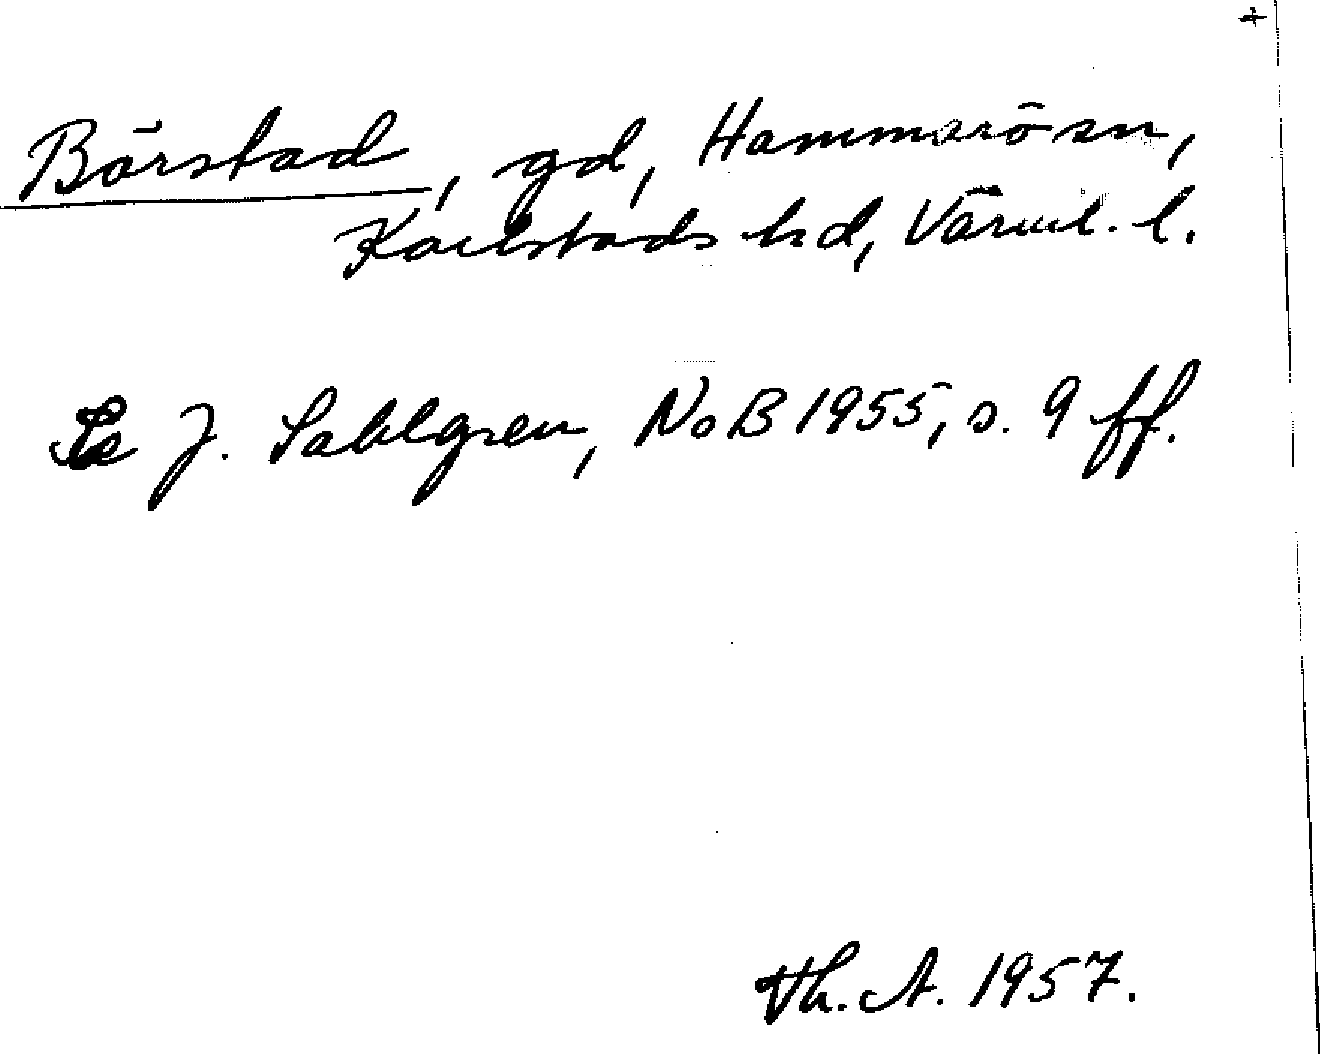 +
Börstad, gd, Hammarö sn,
Karlstads hd, Värml. l.
Se J. Sahlgren, NoB 1955, s. 9 ff.
Th. A. 1957.